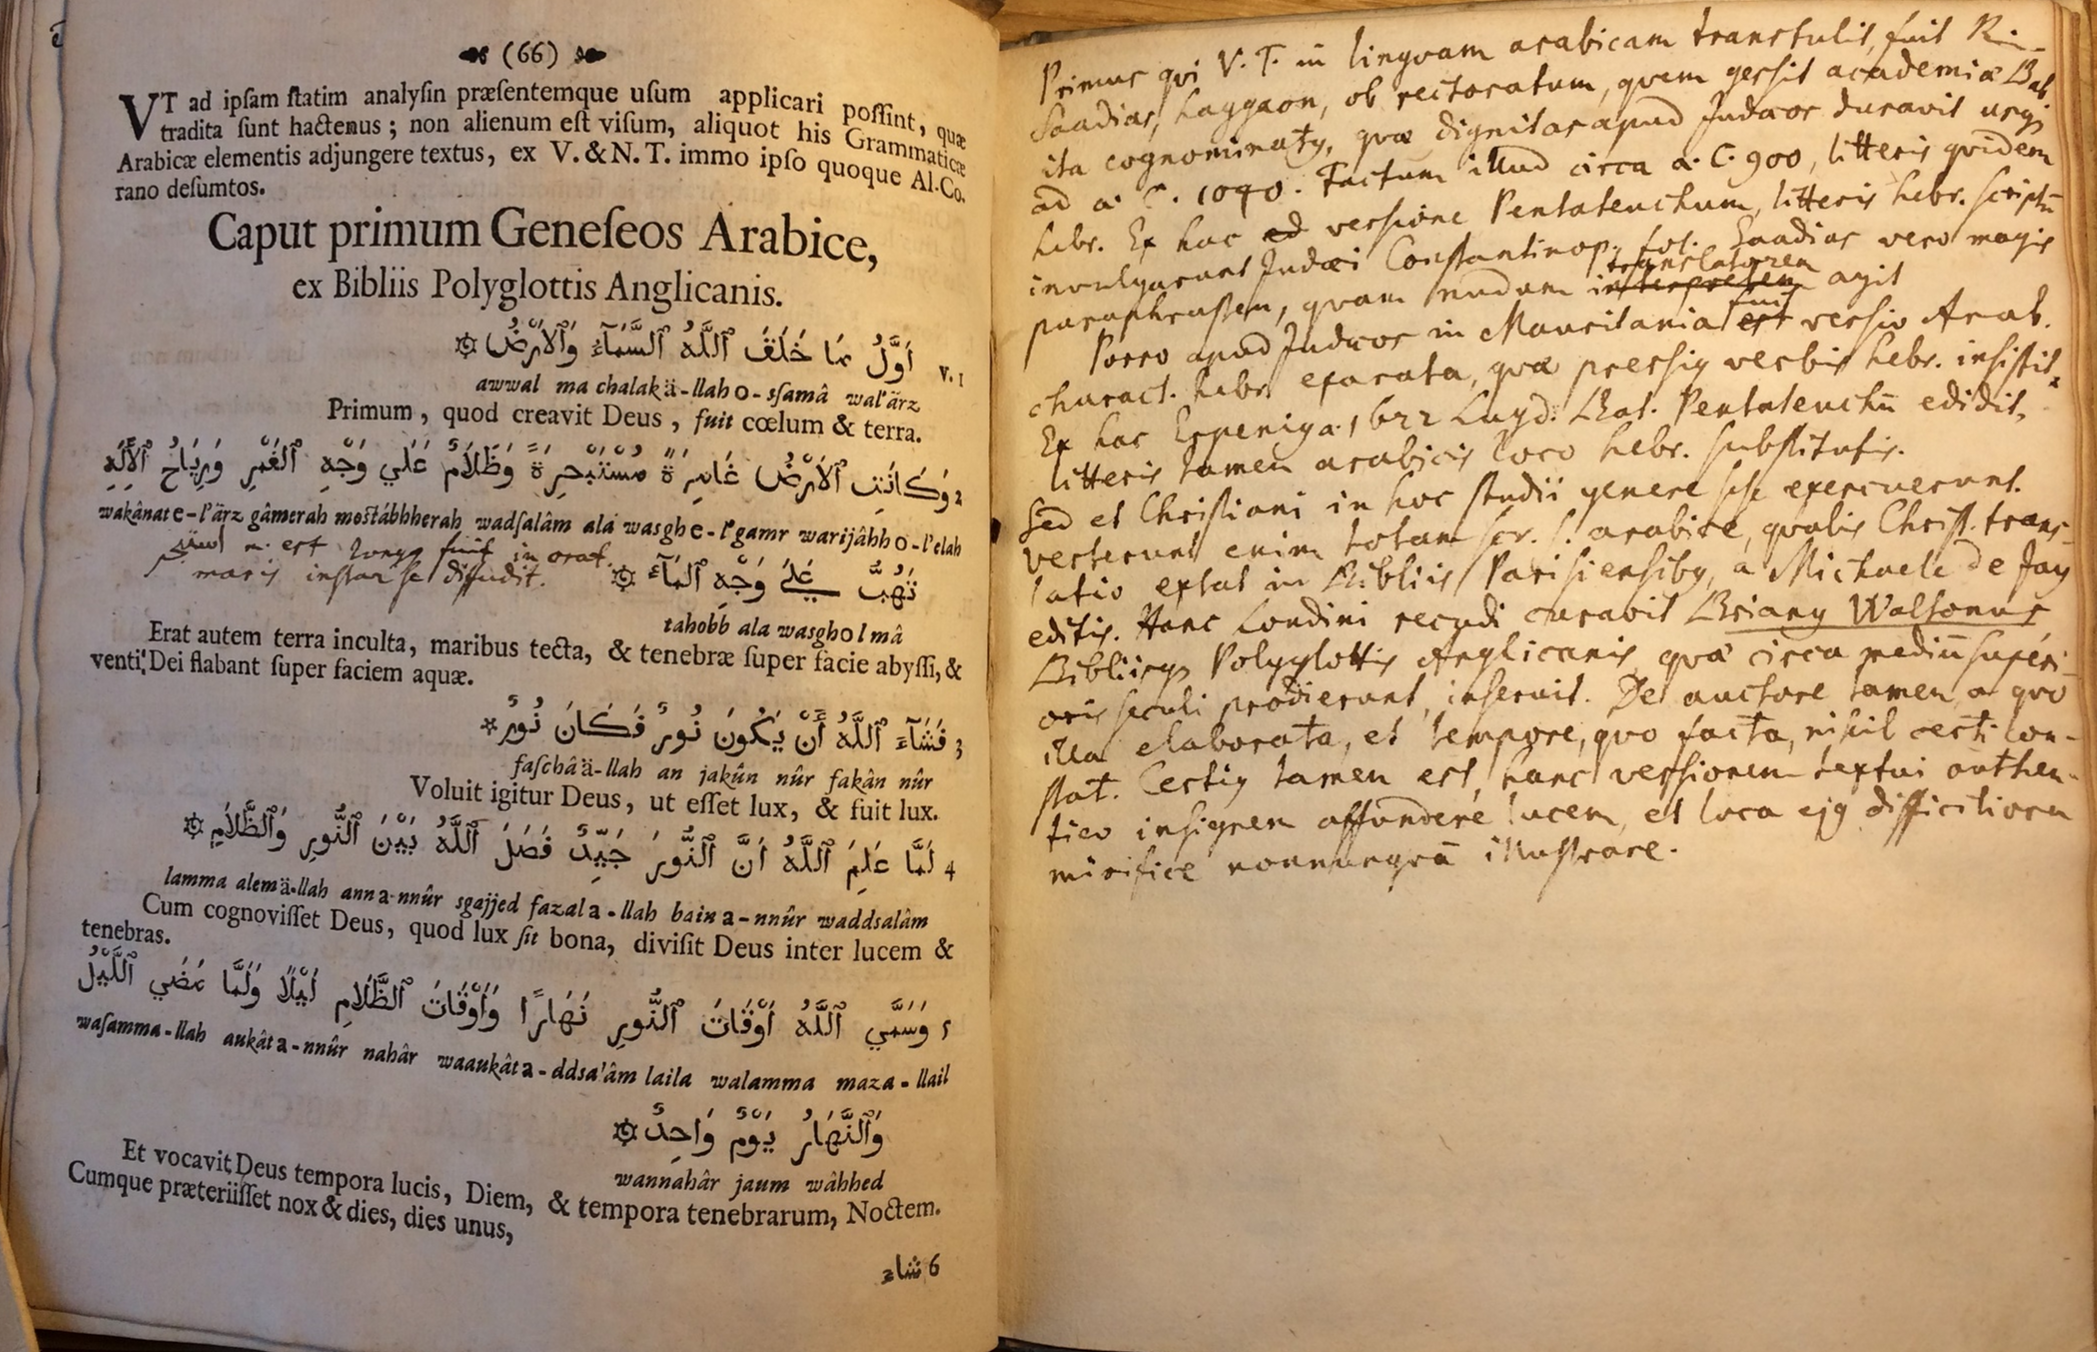 (66)
VT ad ipſam ſtatim analyſin præſentemque uſum applicari poſſint, quæ
tradita ſunt hactenus; non alienum eſt viſum, aliquot his Grammaticæ
Arabicæ elementis adjungere textus, ex V. & N. T. immo ipſo quoque Al-Co-
rano deſumtos.
Caput primum Geneſeos Arabice,
ex Bibliis Polyglottis Anglicanis.
V. 1 اَوَّلُ مَا خَلَقَ ٱللَّهُ ٱلسَّمَآءَ وَٱلْاَرْضُ ۞
awwal ma chalakä-llaho-sſamâ wal'ärz
Primum, quod creavit Deus, fuit cœlum & terra.
2 وَكَانَتِ ٱلْاَرْضُ غَامِرَةً مُسْتَبْحِرَةً وَظَلَامٌ عَلَي وَجْهِ ٱلْغَمْرِ وَرِيَاحُ ٱلْاِلَهِ
wakânate-l'ärz gâmerah moſtábhherah wadſalâm ala wasghe-l'gamr warijâhho-l'elah
استبحر n. est longus fuit in orat.
maris instar se diffudit.
تَهُبُّ عَلَيَ وَجْهِ ٱلْمَآءَ ۞
tahobb ala wasgholmâ
Erat autem terra inculta, maribus tecta, & tenebræ ſuper facie abyſſi, &
venti Dei flabant ſuper faciem aquæ.
3 فَشَآءَ ٱللَّهُ أَنْ يَكُونَ نُورٌ فَكَانَ نُورٌ *
faſchâä-llah an jakûn nûr fakân nûr
Voluit igitur Deus, ut eſſet lux, & fuit lux.
4 لَمَّا عَلِمَ ٱللَّهُ اَنَّ ٱلنُّورَ جَيِّدٌ فَصَلَ ٱللَّهُ بَيْنَ ٱلنُّورِ وَٱلظَّلَامِ ۞
lamma alemä-llah anna-nnûr sgajjed fazala-llah baina-nnûr waddsalâm
Cum cognoviſſet Deus, quod lux ſit bona, diviſit Deus inter lucem &
tenebras.
5 وَسَمَّي ٱللَّهُ اَوْقَاتَ ٱلنُّورِ نَهَارًا وَاَوْقَاتَ ٱلظَّلَامِ لَيْلًا وَلَمَّا مَضَي ٱللَّيْلُ
waſamma-llah aukâta-nnûr nahâr waaukâta-ddsa'âm laila walamma maza-llail
وَٱلنَّهَارُ يَوْمٌ وَاحِدٌ ۞
wannahâr jaum wâhhed
Et vocavit Deus tempora lucis, Diem, & tempora tenebrarum, Noctem.
Cumque præteriiſſet nox & dies, dies unus,
6 شاء
Primus qvi V. T. in lingvam arabicam transtulit, fuit R.
Saadias, haggaon, ob rectoratum, quem gessit academiæ Bab
ita cognominatus, quæ dignitas apud Judæos duravit usqs
ad a. C. 1040. Factum illud circa a. C. 900, litteris qvidem
hebr. Ex hac ed versione Pentateuchum, litteris hebr. scriptū
invulgarunt Judæi Constantinop. fol. Saadias vero magis
paraphrasten, quam nudum interpretem translatorem agit
Porro apud Judæos in Mauritania est fuit versio Arab.
charact. hebr. exarata, quæ pressius verbis hebr. insistit.
Ex hac Erpenius a. 1622 Lugd. Bat. Pentateuchū edidit,
litteris tamen arabicis loco hebr. substitutis.
Sed et Christiani in hoc studii genere sese exercuerunt.
verterunt enim totam scr. S. arabice, qvalis Christ. trans-
latio extat in Bibliis Parisiensibus, a Michaele de Jay
editis. Hanc Londini recudi curavit Brianus Waltonus
Bibliisqs Polyglottis Anglicanis, quæ circa mediū superi-
oris seculi prodierunt, inseruit. De auctore tamen, a quo
illa elaborata, et tempore, quo facta, nihil certi con-
stat. Certius tamen est, hanc versionem textui authen-
tico insignem affundere lucem, et loca ejus difficiliora
mirifice nonnunquā illustrare.